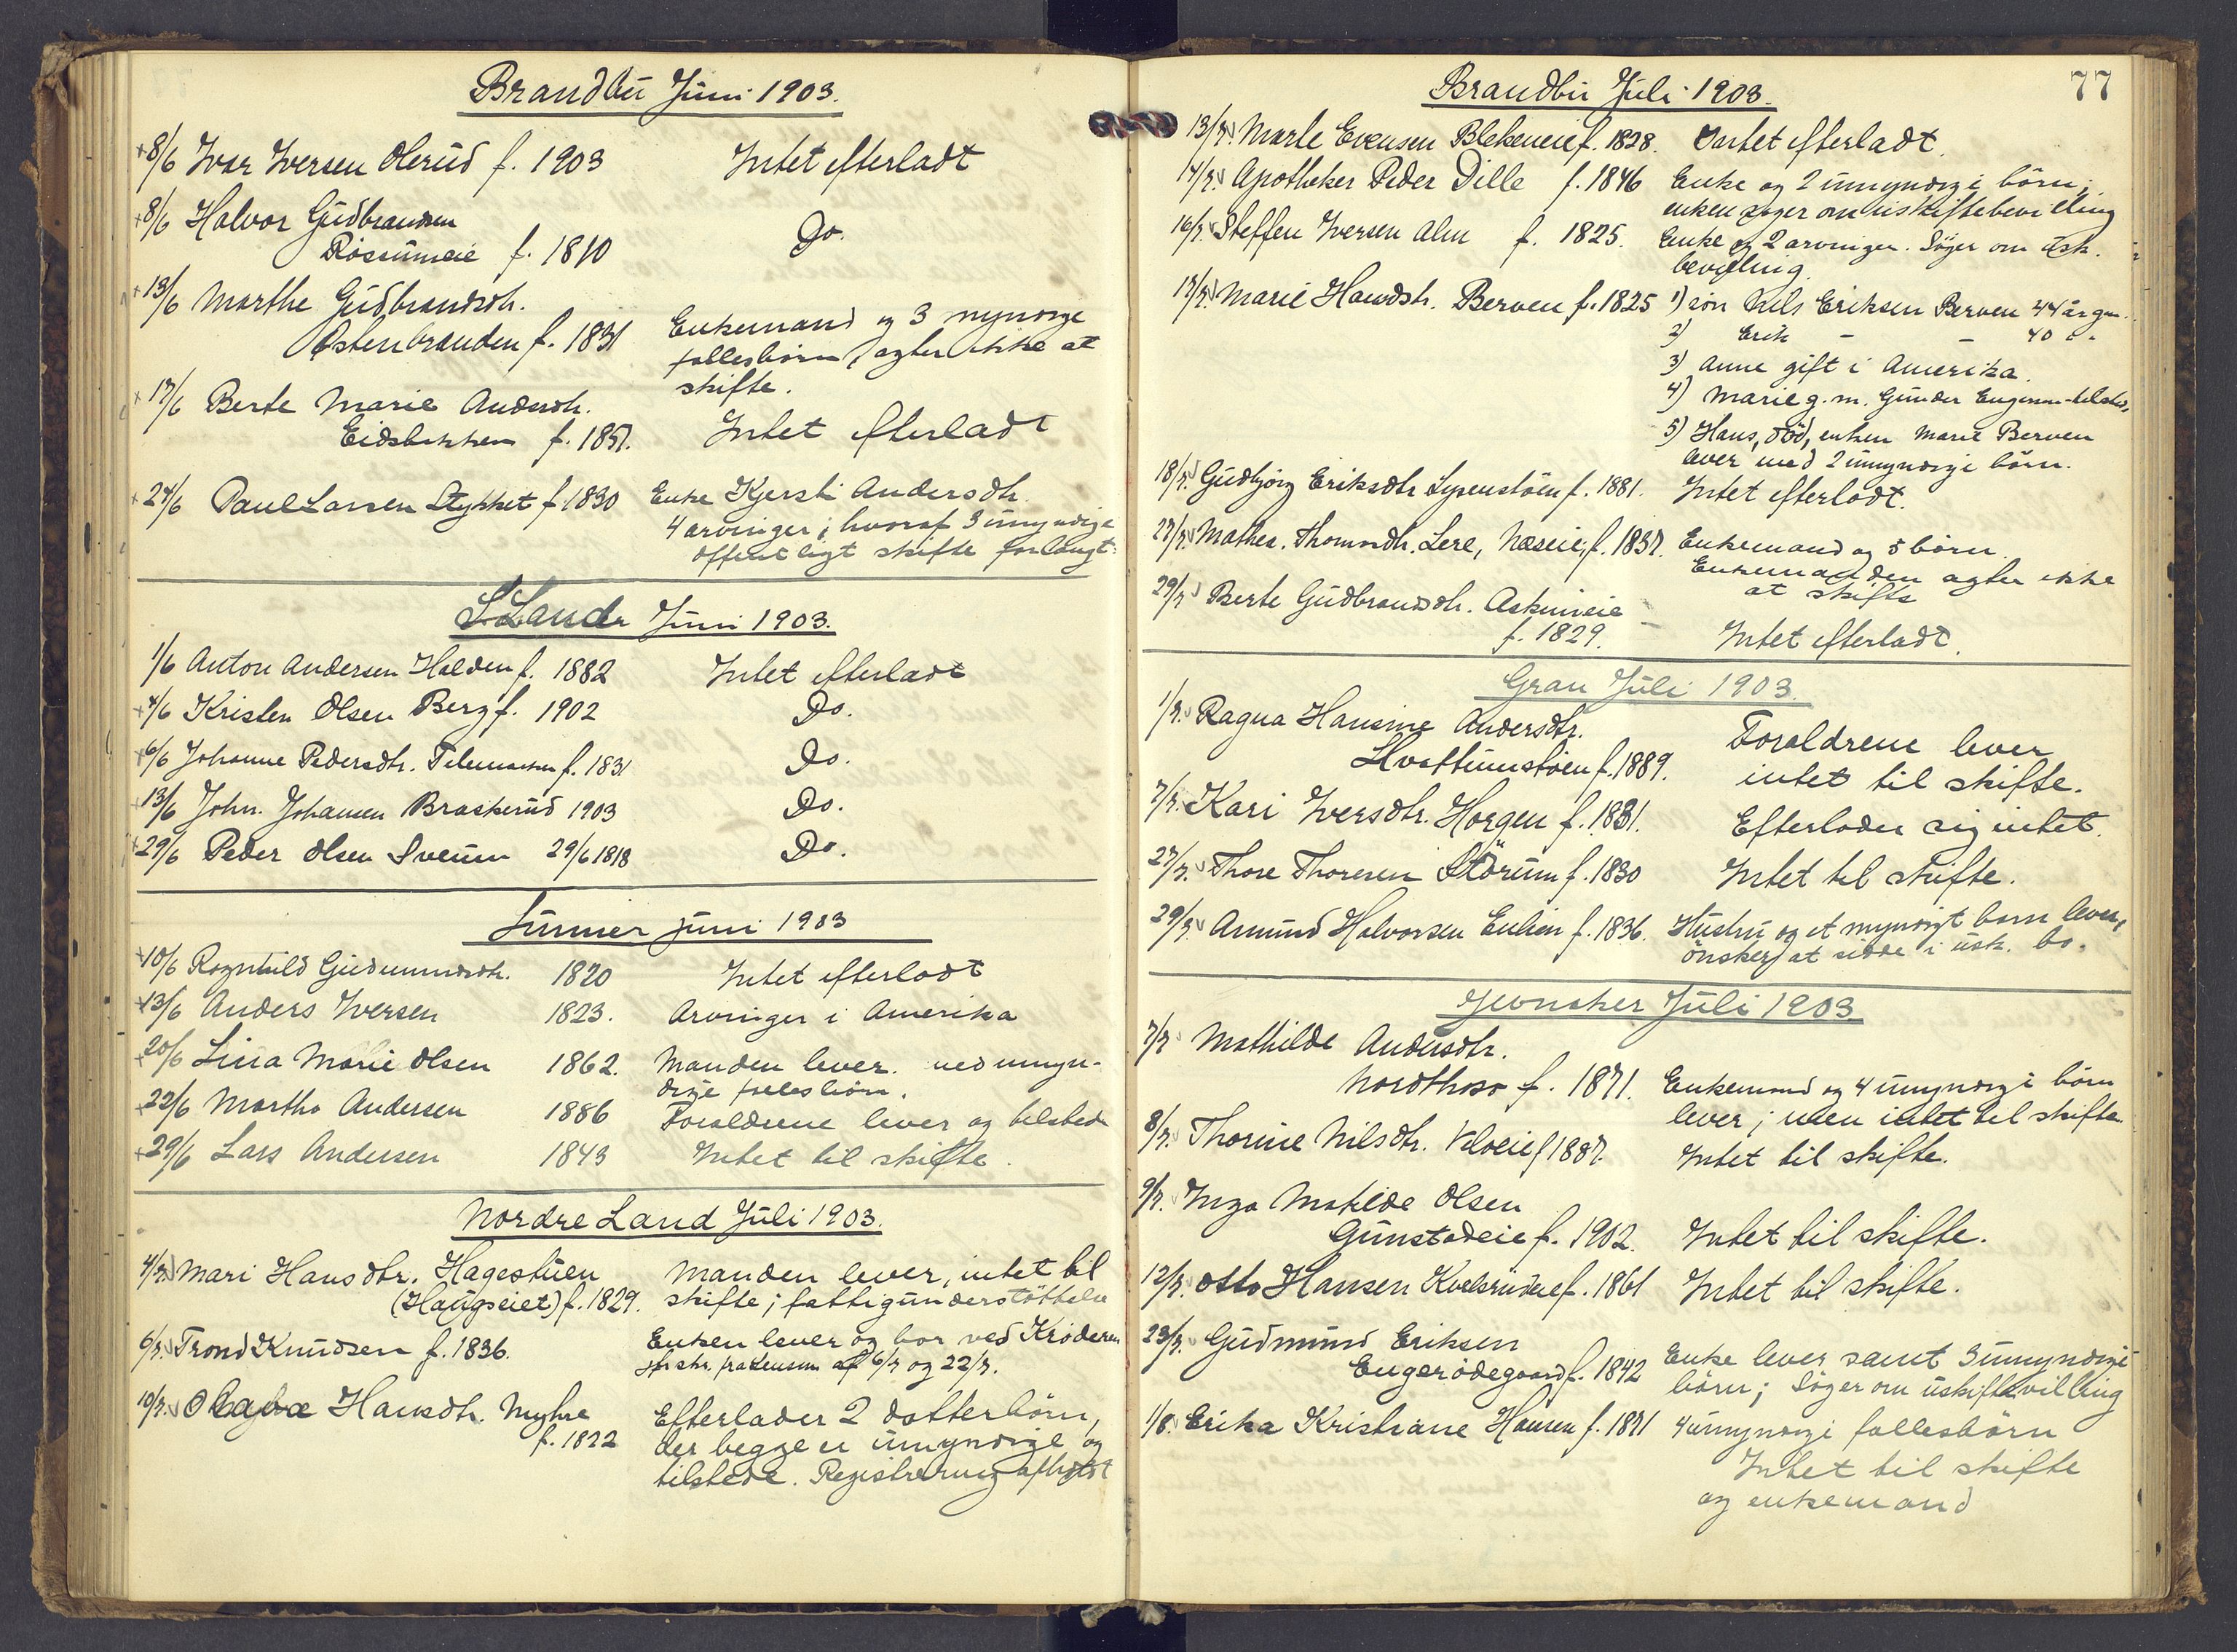 Brandbu Juni 1903.
8/6 Ivar Iversen Olerud f. 1903 Intet efterladt
8/6 Halvor Gudbrandsen
Rossumeie f. 1810 Do.
13/6 Marthe Gudbrandsdtr.
Østenbraaden f. 1831 Enkemand og 3 myndige
fellesbørn, agter ikke at
skifte.
17/6 Berte Marie Andersdtr.
Eidsbakken f. 1851. Intet efterladt
24/6 Paul Larsen Stykket f. 1830 Enke Kjersti Andersdtr.
4 arvinger, hvoraf 3 umyndige
offentligt skifte forlangt.
S. Land Juni 1903.
1/6 Anton Andersen Halden f. 1882 Intet efterladt
4/6 Kristen Olsen Berg f. 1902 Do.
6/6 Johanne Pedersdtr. Telemarken f. 1831 Do.
13/6 John Johansen Braskerud 1903 Do.
29/6 Peder Olsen Sveum 29/6 1818 Do.
Lunner juni 1903
10/6 Ragnhild Gudmundsdtr. 1820 Intet efterladt
13/6 Anders Iversen 1823. Arvinger i Amerika
20/6 Lina Marie Olsen 1862. Manden lever. med umyn-
dige fellesbørn.
22/6 Martha Andersen 1886 Foreldrene lever og tilstede
29/6 Lars Andersen 1843 Intet til skifte.
Nordre Land Juli 1903.
4/7. Mari Hansdtr. Hagestuen Manden lever, intet til
(Haugseiet) f. 1829. skifte; fattigunderstøttelse
6/7. Trond Knudsen f. 1836. Enken lever og bor ved Krøderen
jfr. skr. fra Lensm. af 6/7 og 22/7.
10/7. Olava Hansdtr. Myhre Efterlader 2 datterbørn,
f. 1822 der begge er umyndige og
tilstede. Registrering afholdt
77
Brandbu Juli 1903.
13/7. Marte Evensen Blekeneie f. 1828. Intet efterladt.
14/7. Apotheker Peder Dille f. 1846 Enke og 2 umyndige børn;
enken søger om uskiftebevilling
16/7. Steffen Iversen Alm f. 1825. Enke og 2 arvinger. Søger om usk.
bevilling.
17/7. Marie Hansdtr. Berven f. 1825 1) søn Nils Eriksen Berven 44 år gm.
2) Erik – – 40 "
3) Anne gift i Amerika.
4) Marie g. m. Gunder tilstede,
5) Hans, død, enken Marie Berven
lever med 2 umyndige børn.
18/7. Gudbjørg Eriksdtr Lysenstøen f. 1881. Intet efterladt.
27/7. Mathea Thomasdtr. Lere, Næseie, f. 1837. Enkemand og 5 børn.
Enkemanden agter ikke
at skifte
29/7 Berte Gudbrandsdtr. Askimeie
f. 1829. Intet efterladt.
Gran Juli 1903.
1/7. Ragna Hansine Andersdtr. Foreldrene lever
Hvattumstøen f. 1889. intet til skifte.
7/7. Kari Iversdtr. Horgen f. 1831. Efterlader sig intet.
27/7. Thore Thoresen Størum f. 1830 Intet til skifte.
29/7. Amund Halvorsen Enlien f. 1836. Hustru og et myndigt barn lever,
ønsker at sidde i usk. bo.
Jevnaker Juli 1903.
7/7 Mathilde Andersdtr.
Nordthoso f. 1871. Enkemand og 4 umyndige børn
lever; men intet til skifte.
8/7. Thorine Nilsdtr. Veloeie f 1887. Intet til skifte.
9/7. Inga Matilde Olsen
Gunstadeie f. 1902. Intet til skifte.
12/7. Otto Hansen f. 1861 Intet til skifte.
23/7. Gudmund Eriksen
Engerødegaard f. 1842 Enke lever samt 3 umyndige
børn; søger om uskiftevilling
1/8. Erika Kristiane Hansen f. 1871 4 umyndige fellesbørn
Intet til skifte
og enkemand